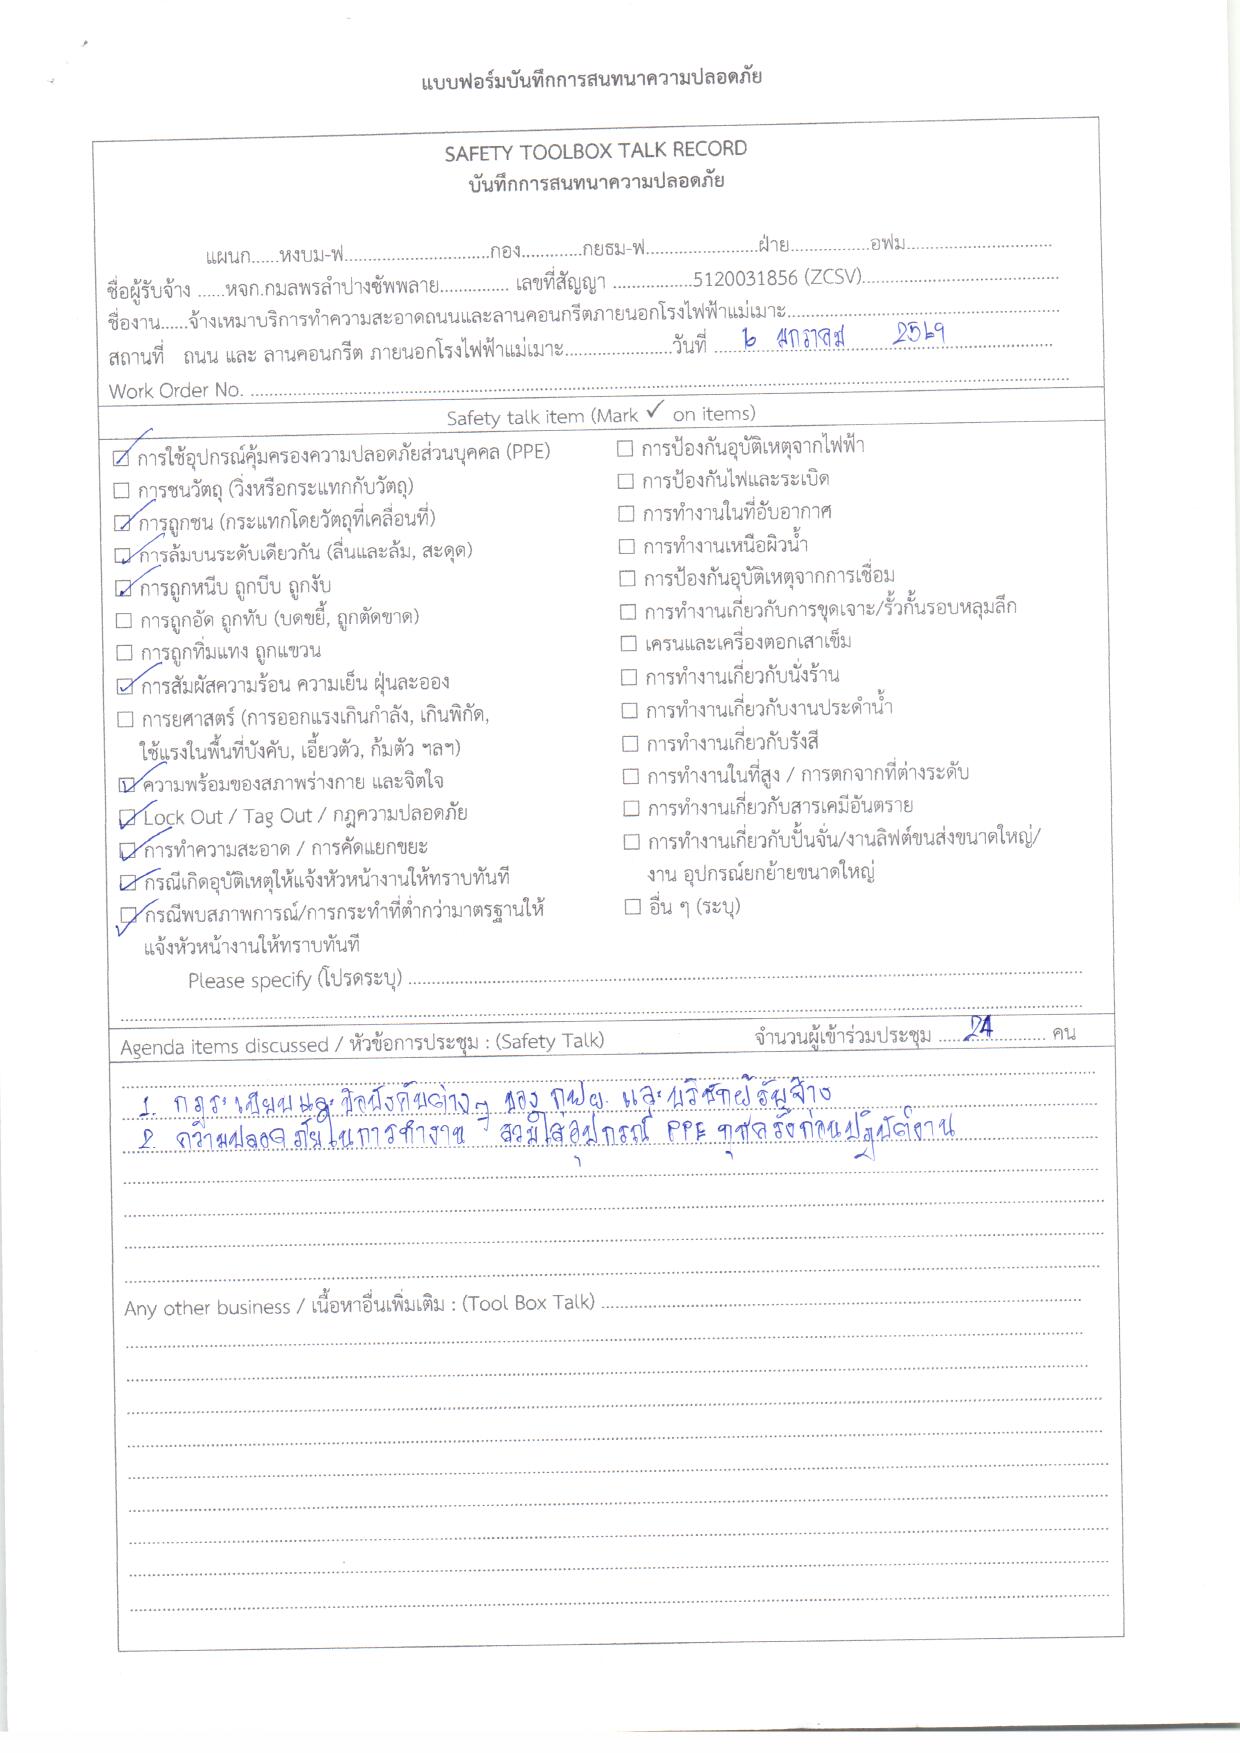 แบบฟอร์มบันทึกการสนทนาความปลอดภัย
SAFETY TOOLBOX TALK RECORD
บันทึกการสนทนาความปลอดภัย
แผนก......หงบม-ฟ..............................กอง............กยธม-ฟ.......................ฝ่าย................อฟม..............................
ชื่อผู้รับจ้าง ......หจก.กมลพรลำปางซัพพลาย.............. เลขที่สัญญา .................5120031856 (ZCSV).........................................
ชื่องาน......จ้างเหมาบริการทำความสะอาดถนนและลานคอนกรีตภายนอกโรงไฟฟ้าแม่เมาะ.........................................................
สถานที่ ถนน และ ลานคอนกรีต ภายนอกโรงไฟฟ้าแม่เมาะ......................วันที่ ..... ๖ มกราคม 2569 .....
Work Order No. .....................................................................................................
Safety talk item (Mark ✓ on items)
☑ การใช้อุปกรณ์คุ้มครองความปลอดภัยส่วนบุคคล (PPE)
☐ การชนวัตถุ (วิ่งหรือกระแทกกับวัตถุ)
☑ การถูกชน (กระแทกโดยวัตถุที่เคลื่อนที่)
☑ การล้มบนระดับเดียวกัน (ลื่นและล้ม, สะดุด)
☑ การถูกหนีบ ถูกบีบ ถูกงับ
☐ การถูกอัด ถูกทับ (บดขยี้, ถูกตัดขาด)
☐ การถูกทิ่มแทง ถูกแขวน
☑ การสัมผัสความร้อน ความเย็น ฝุ่นละออง
☐ การยศาสตร์ (การออกแรงเกินกำลัง, เกินพิกัด,
ใช้แรงในพื้นที่บังคับ, เอี้ยวตัว, ก้มตัว ฯลฯ)
☑ ความพร้อมของสภาพร่างกาย และจิตใจ
☑ Lock Out / Tag Out / กฎความปลอดภัย
☑ การทำความสะอาด / การคัดแยกขยะ
☑ กรณีเกิดอุบัติเหตุให้แจ้งหัวหน้างานให้ทราบทันที
☑ กรณีพบสภาพการณ์/การกระทำที่ต่ำกว่ามาตรฐานให้
แจ้งหัวหน้างานให้ทราบทันที
☐ การป้องกันอุบัติเหตุจากไฟฟ้า
☐ การป้องกันไฟและระเบิด
☐ การทำงานในที่อับอากาศ
☐ การทำงานเหนือผิวน้ำ
☐ การป้องกันอุบัติเหตุจากการเชื่อม
☐ การทำงานเกี่ยวกับการขุดเจาะ/รั้วกั้นรอบหลุมลึก
☐ เครนและเครื่องตอกเสาเข็ม
☐ การทำงานเกี่ยวกับนั่งร้าน
☐ การทำงานเกี่ยวกับงานประดำน้ำ
☐ การทำงานเกี่ยวกับรังสี
☐ การทำงานในที่สูง / การตกจากที่ต่างระดับ
☐ การทำงานเกี่ยวกับสารเคมีอันตราย
☐ การทำงานเกี่ยวกับปั้นจั่น/งานลิฟต์ขนส่งขนาดใหญ่/
งาน อุปกรณ์ยกย้ายขนาดใหญ่
☐ อื่น ๆ (ระบุ)
Please specify (โปรดระบุ) .....................................................................................................
Agenda items discussed / หัวข้อการประชุม : (Safety Talk) จำนวนผู้เข้าร่วมประชุม ..... 24 ..... คน
1. กฎระเบียบและข้อบังคับต่างๆ ของ กฟผ. และบริษัทผู้รับจ้าง
2. ความปลอดภัยในการทำงาน สวมใส่อุปกรณ์ PPE ทุกครั้งก่อนปฏิบัติงาน
Any other business / เนื้อหาอื่นเพิ่มเติม : (Tool Box Talk) .....................................................................................................